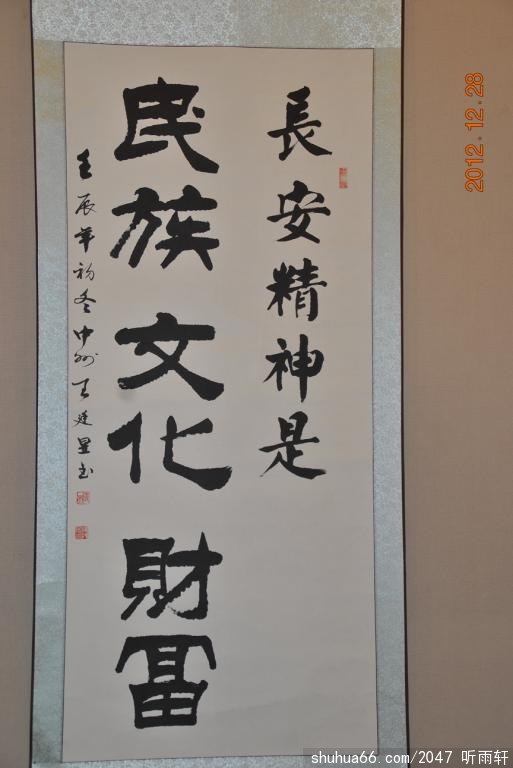 長安精神是
民族文化財富
壬辰年初冬中州王廷星书
2012.12.28
shuhua66.com/2047 听雨轩